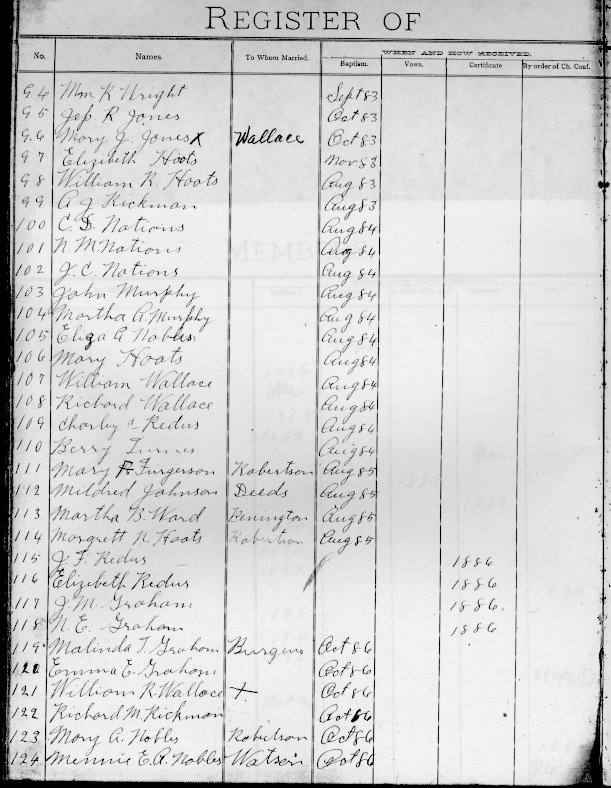 REGISTER OF
WHEN AND HOW RECEIVED.
No. Names. To Whom Married. Baptism. Vows. Certificate By order of Ch. Conf.
94 Wm R Wright Sept 83
95 Jes. R Jones Oct 83
96 Mary J. Jones X Wallace Oct 83
97 Elizibeth Hoots Nov 83
98 William R. Hoots Aug 83
99 A J Rickman Aug 83
100 C. S. Nations Aug 84
101 N. M Nations Aug 84
102 J. C. Nations Aug 84
103 John Murphy Aug 84
104 Martha A. Murphy Aug 84
105 Eliza A Nobles Aug 84
106 Mary Hoots Aug 84
107 William Wallace Aug 84
108 Richard Wallace Aug 84
109 Charley C Redus Aug 84
110 Berry Turner Aug 84
111 Mary F. Furgerson Robertson Aug 85
112 Mildred Johnson Deeds Aug 85
113 Martha B. Ward Benington Aug 85
114 Morgrett N. Hoots Robertson Aug 85
115 J. F. Redus 1886
116 Elizibeth Redus 1886
117 J. M. Graham 1886.
118 N. E. Graham 1886
119 Malinda T. Graham Burgens Oct 86
120 Emma E. Graham Oct 86
121 William R. Wallace + Oct 86
122 Richard M. Rickman Oct 86
123 Mary A. Nobles Robertson Oct 86
124 Minnie E. A. Nobles Watson Oct 86